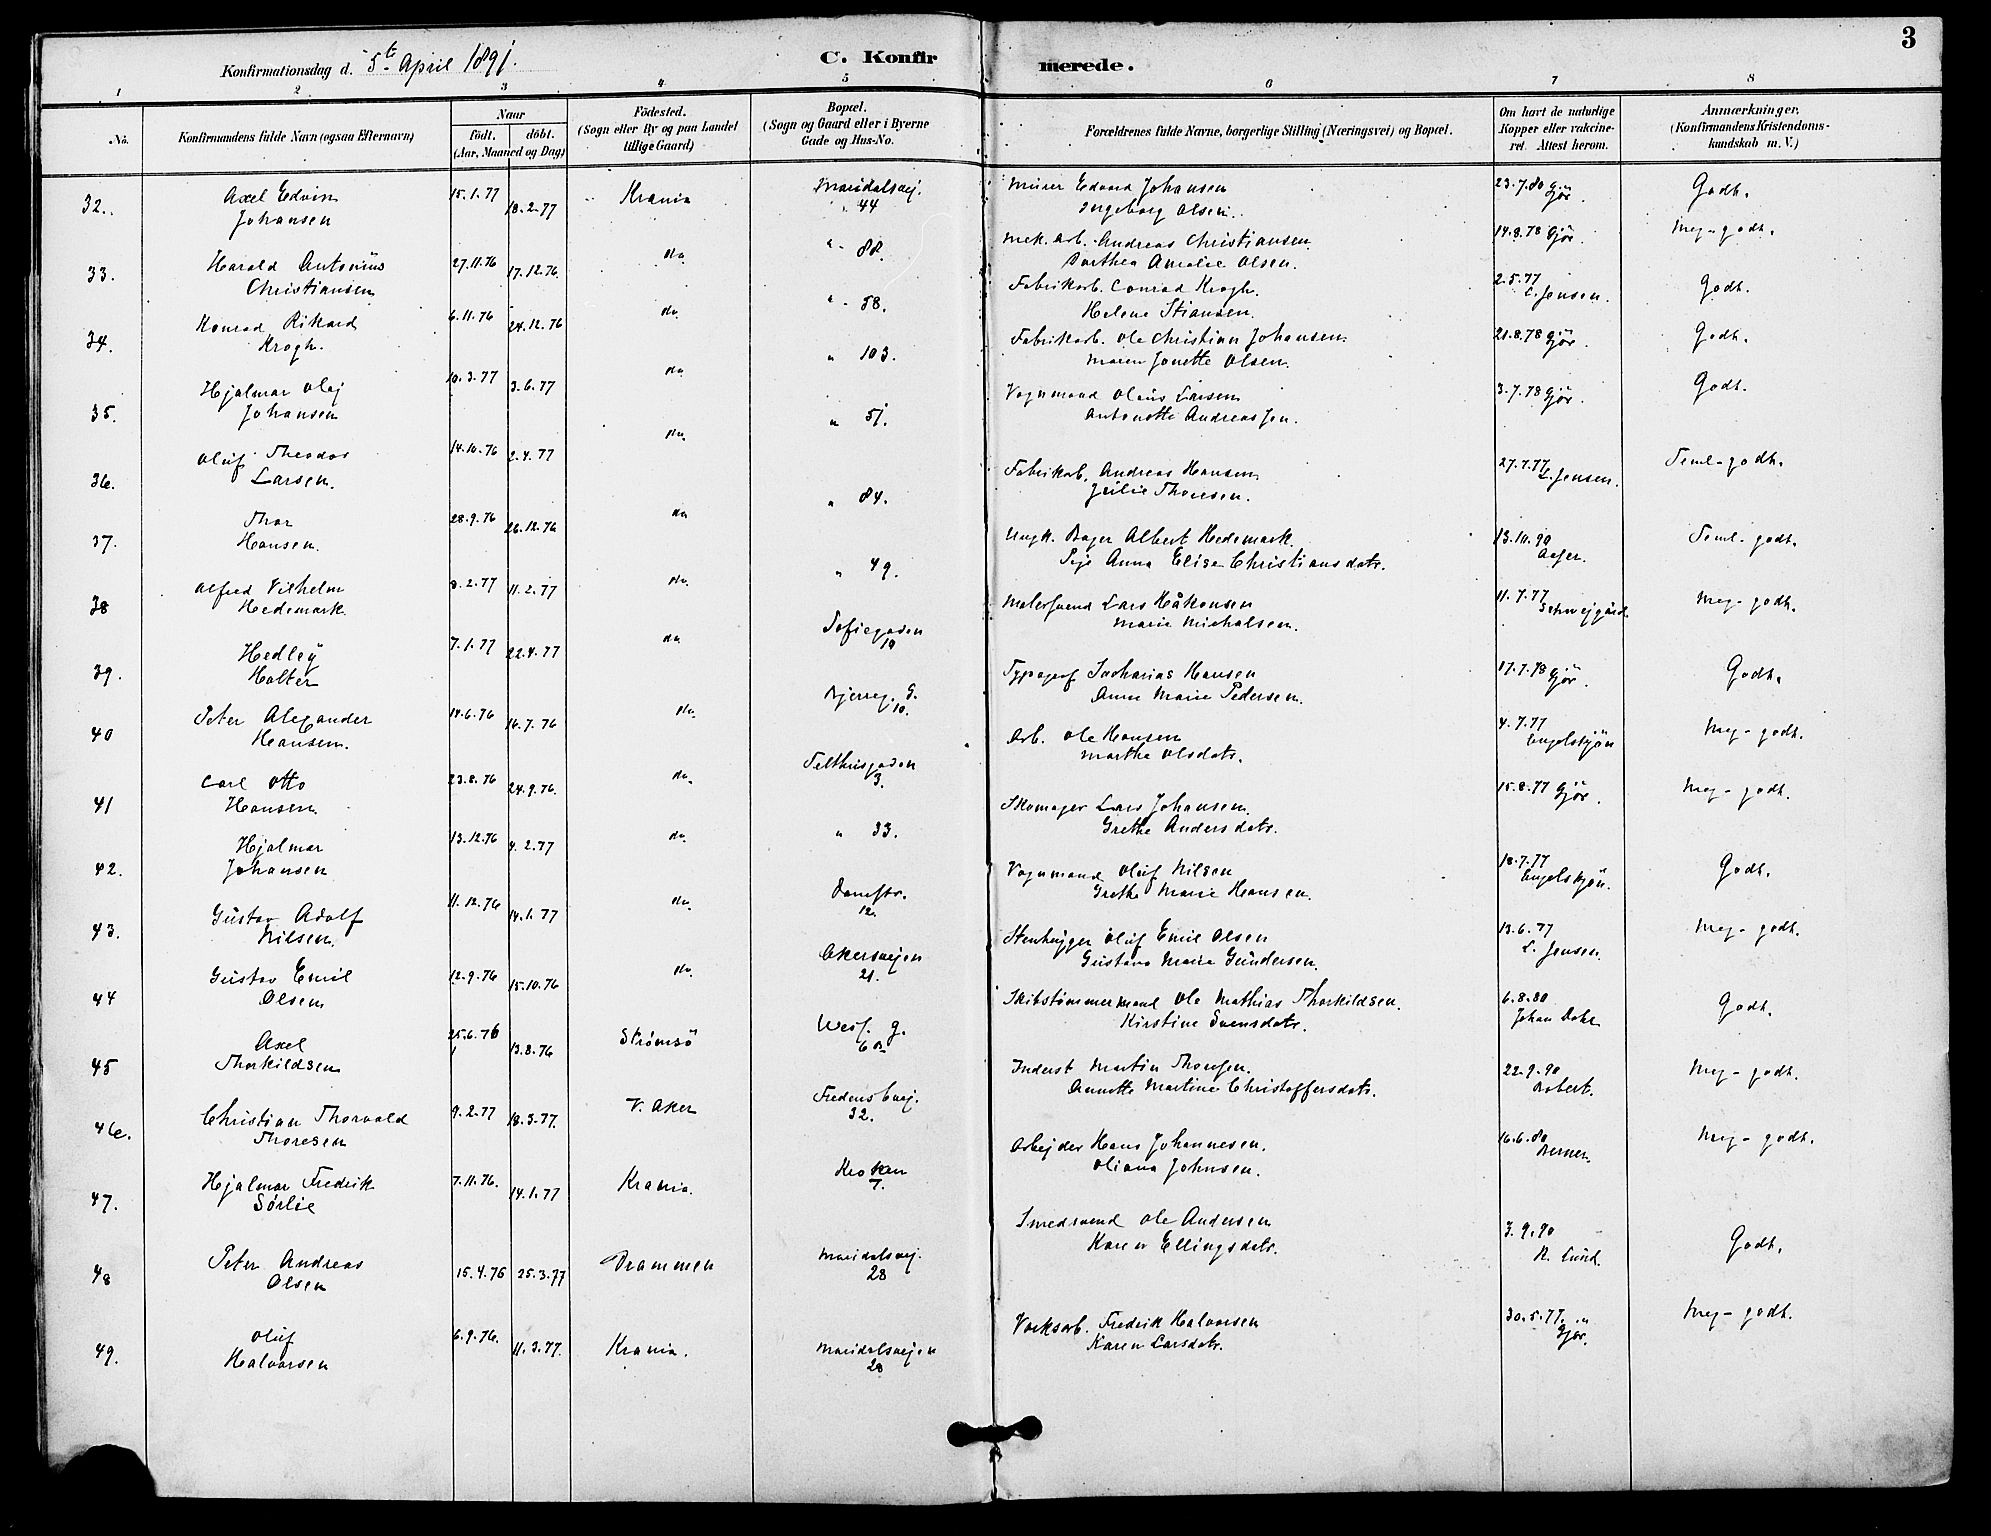 Konfirmationsdag d. 5te April 1891.
C. Konfirmerede.
3
1 2 3 4 5 6 7 8
No.
Konfirmandens fulde Navn (ogsaa Efternavn)
Naar
födt. döbt.
(Aar, Maaned og Dag)
Födested.
(Sogn eller By og paa Landet
tillige Gaard)
Bopæl.
(Sogn og Gaard eller i Byerne
Gade og Hus-No.
Forældrenes fulde Navne, borgerlige Stilling (Næringsvei) og Bopæl.
Om havt de naturlige
Kopper eller vakcine-
ret. Attest herom.
Anmærkninger,
(Konfirmandens Kristendoms-
kundskab m. V.)
32. Axel Edvin 15.1.77 18.2.77 Krania Maridalsvej. Murer Edvard Johansen 23.7.80 Gjør. Godt.
Johansen 44 Ingeborg Olsen.
33. Harald Antonius 27.11.76 17.12.76 do. " 88. Mek. Arb. Andreas Christiansen 14.8.78 Gjör. Meg-godt.
Christiansen Dorthea Amalie Olsen.
34. Konrad Rikard 6.11.76 24.12.76 do. " 58. Fabrikarb. Conrad Krogh. 2.5.77 Godt.
Krogh. Helene Stiansen. L. Jensen.
35. Hjalmar Olaj 10.3.77 3.6.77 do. " 103. Fabrikarb. Ole Christian Johansen 21.8.78 Gjör. Godt.
Johansen Maren Jonette Olsen.
36. Oluf Theodor 14.10.76 2.4.77 do. " 51. Vognmand Olaus Larsen 3.7.78 Gjör. Godt.
Larsen. Antonette Andreassen.
37. Thor 28.9.76 26.12.76 do " 84. Fabrikarb. Andreas Hansen 27.7.77 Teml-godt.
Hansen. Julie Thoresen. L. Jensen.
38 Alfred Vilhelm 8.2.77 11.2.77 do. " 49. Ungk. Bager Albert Hedemark. 13.10.90 Teml-godt.
Hedemark. Pige Anna Elise Christiansdatr.
39. Hedley 7.1.77 22.4.77 do. Sofiegaden Malersvend Lars Håkonsen 11.7.77 Meg-godt.
Holter 19 Marie Michalsen. Schweigård
40 Peter Alexander 14.6.76 16.7.76 do. Bjerreg. G. Typograf Sacharias Hansen 17.7.78 Gjör. Godt.
Hansen. 10. Anne Marie Pedersen.
41 Carl Otto 23.8.76 24.9.76. do. Telthusgaden Arb. Ole Hansen 4.7.77 Meg-godt.
Hansen 3. Martha Olsdatr. Engelskjön
42. Hjalmar 13.12.76 4.2.77 do. " 33. Skomager Lars Johansen 15.8.77 Gjör. Meg-godt.
Johansen Grethe Andersdatr.
43. Gustav Adolf 11.12.76 14.1.77 do. Damstr. Vognmand Oluf Nilsen 18.7.77 Godt.
Nilsen. 12. Grethe Marie Hansen. Engelskjön.
44 Gustav Emil 12.9.76 15.10.76 do. Akersvejen Stenhugger Oluf Emil Olsen 13.6.77 Meg-godt.
Olsen 21. Gustava Marie Gundersen. L. Jensen
45 Axel 25.6.76 13.8.76 Strømsö Wess. g. Skibstømmermand Ole Mathias Thorkildsen. 6.8.80 Godt.
Thorkildsen Kirstine Svensdatr. Johan Dahl
46. Christian Thorvald 9.2.77 18.3.77. V. Aker Fredensbvej. Inderst Martin Thoresen. 22.9.90 Meg-godt.
Thoresen 32. Annette Martine Christoffersdatr. Robert.
47. Hjalmar Fredrik 7.11.76. 14.1.77 Krania. Kroken Arbejder Hans Johannesen. 16.6.80 Meg-godt.
Sørlie 7. Oliana Johnsen. Berner.
48 Peter Andreas 15.4.76 25.3.77 Drammen Maridalsvej. Smedsvend Ole Andersen 3.9.90 Godt.
Olsen 28 Karen Ellingsdatr. R. Lund.
49. Oluf 6.9.76. 11.3.77. Krania. Maridalsvejen Værksarb. Fredrik Halvorsen 30.5.77. Gjör. Meg-godt.
Halvorsen 28 Karen Larsdatr.